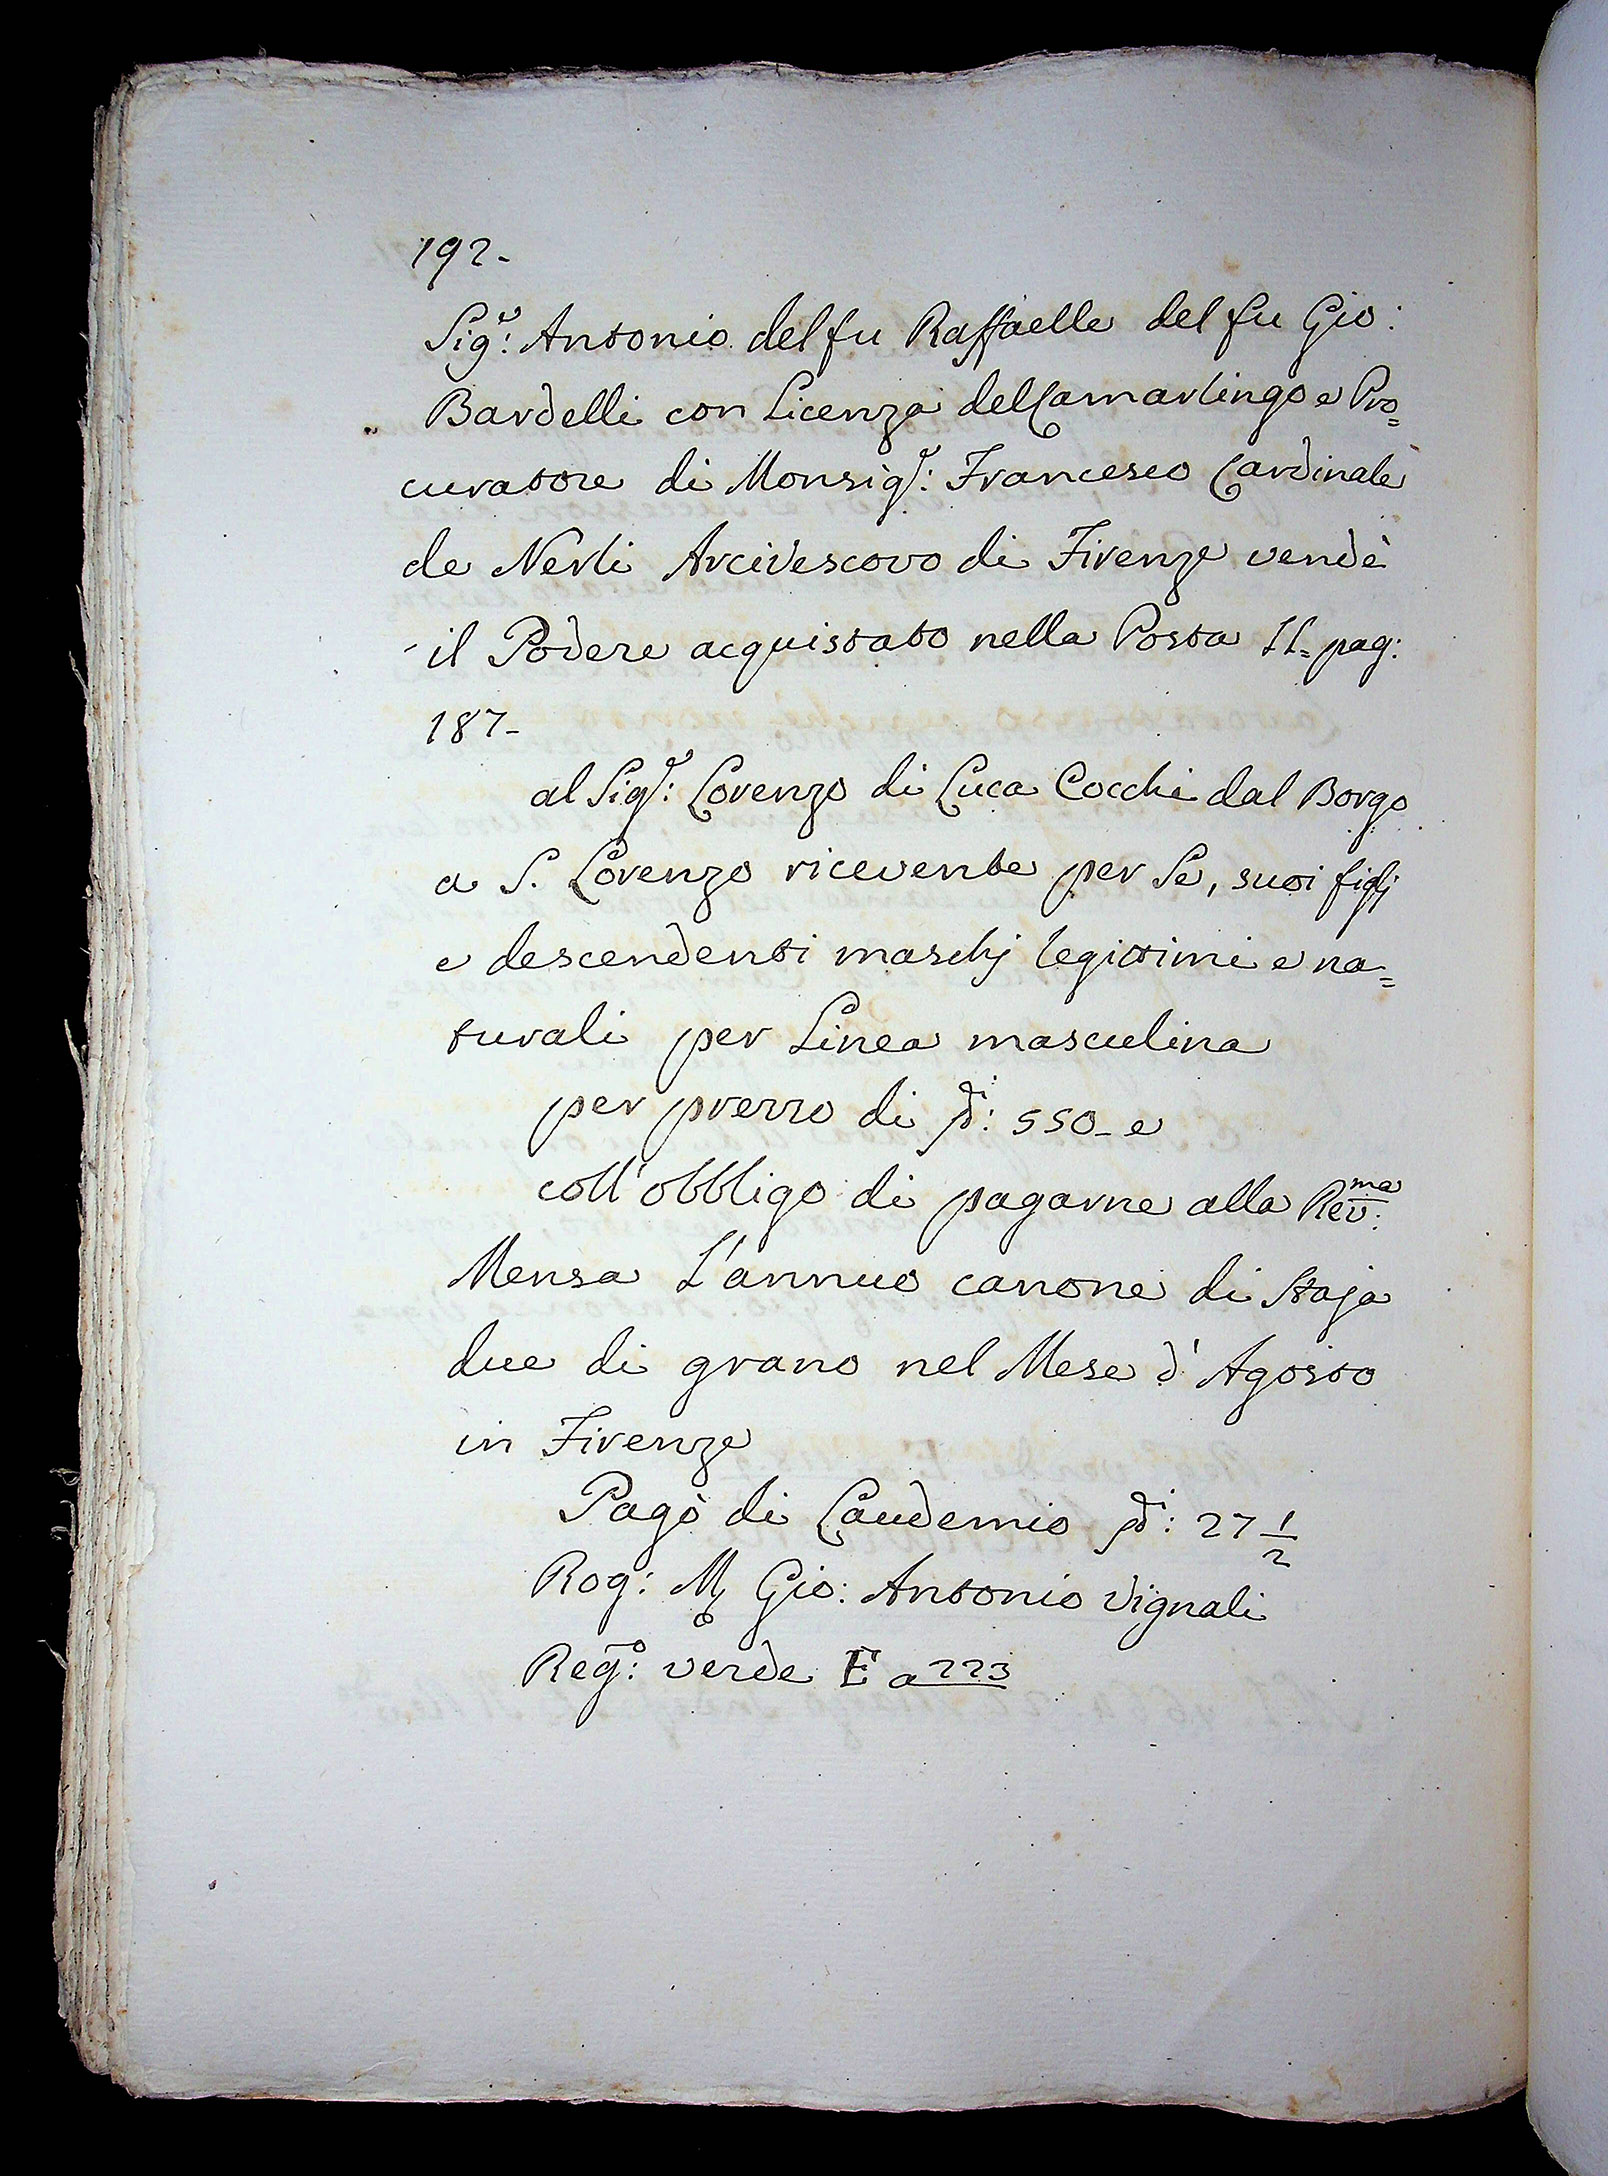 192-
Sig.r: Antonio del fu Raffaelle del fu Gio:
Bardelli con Licenza del Camarlingo e Pro=
curatore di Monsig.r: Francesco Cardinale
de Nerli Arcivescovo di Firenze vendè
il Podere acquistato nella Posta 11= pag:
187-
al Sig.r: Lorenzo di Luca Cocchi dal Borgo
a S. Lorenzo ricevente per Se, suoi figlj
e descendenti maschj legittimi e na=
turali per Linea masculina
per prezzo di 550- e
coll'obbligo di pagarne alla Rev:ma
Mensa L'annuo canone di Staja
due di grano nel Mese d'Agosto
in Firenze
Pagò di Laudemio 27 1/2
Rog: Gio: Antonio Vignali
Reg.o: verde E a 223